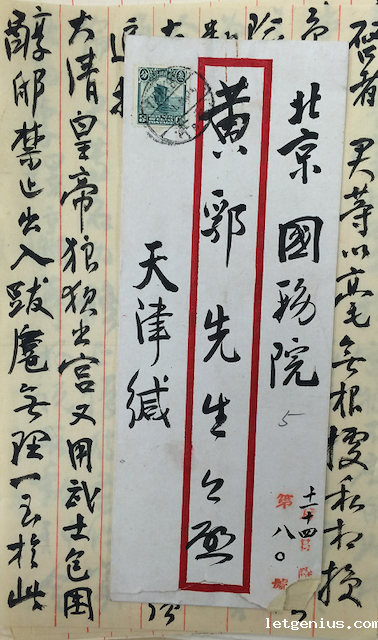 啓者 君等以毫無根據私相授
北京國務院
5
黃郛先生台啟
天津緘
十一十四
第八〇號
大清皇帝狼狽出宮又用武士包圍
醇邸禁止出入跋扈無理一至於此
letgenius.com